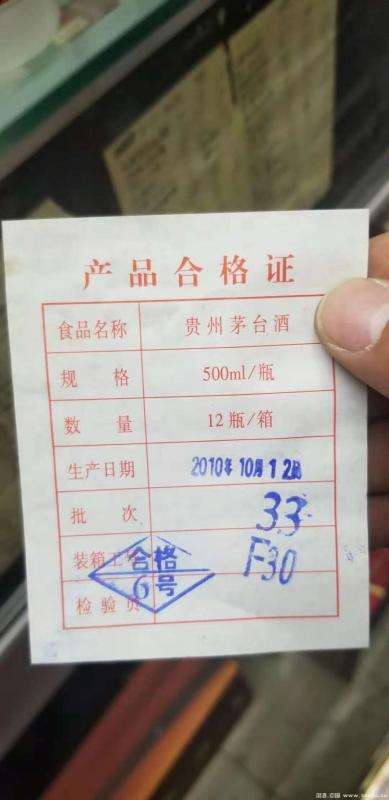 产品合格证
食品名称 贵州茅台酒
规 格 500ml/瓶
数 量 12瓶/箱
生产日期 2010年10月12日
批 次 33
装箱工号 F30
合格
6号
检验员